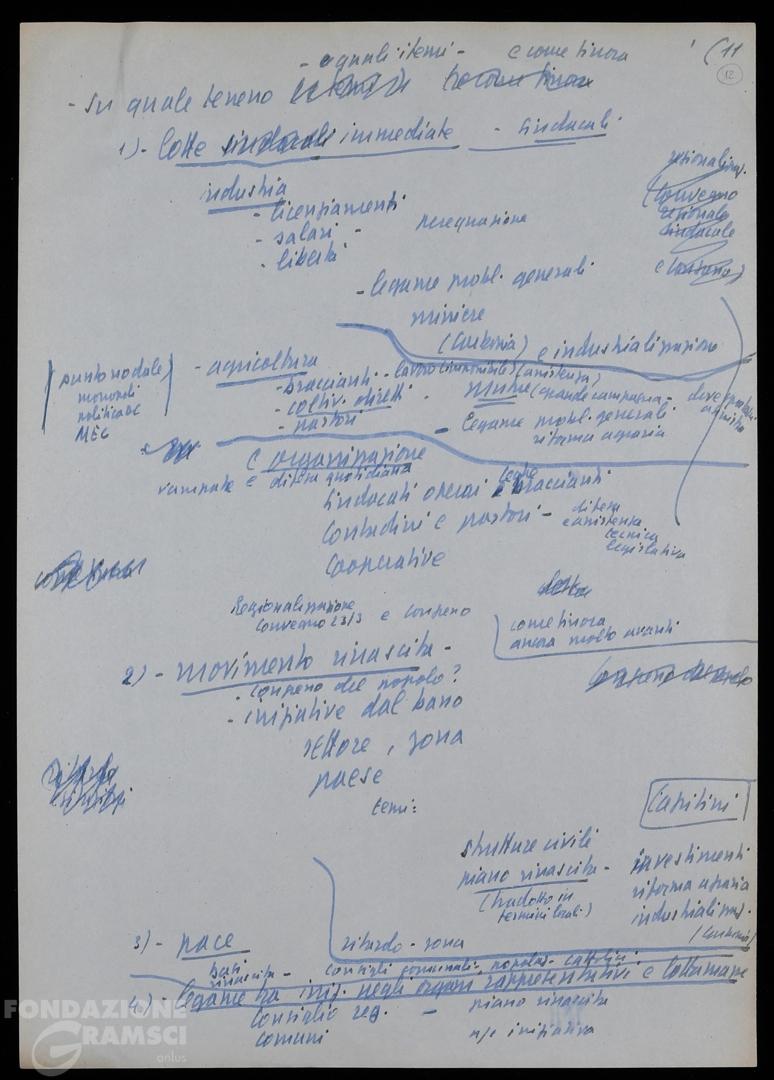 - e quali i temi - e come finora
- Su quale terreno
(11
12
1) - lotte sindacali immediate - sindacali
industria
- licenziamenti
- salari - perequazione
- libertà
regionalizzaz.
(convegno
regionale
sindacale
- legame probl. generali
miniere
(Carbonia) e industrializzazione
punto nodale
monopoli
politica DC
MEC
- agricoltura
- braccianti - lavoro (imponibile) (assistenza)
- coltiv. diretti - mutue (grande campagna -
- pastori
- legame probl. generali
riforma agraria
e organizzazione
vaninate e difesa quotidiana
sindacati operai e braccianti
leghe
contadini e pastori - difesa
e assistenza
tecnica
legislativa
cooperative
Regionalizzazione
convegno 23/3 e congresso
come finora
ancora molto avanti
2) - movimento rinascita -
- congresso del popolo?
- iniziative dal basso
settore, zona
paese
temi:
Capitini
strutture civili
piano rinascita -
(tradotto in
termini locali)
investimenti
riforma agraria
industrializzaz.
(Carbonia)
3) - pace
ritardo - zona
basi
rinascita - consigli comunali - popolaz. cattolici
4) - legame tra iniz. negli organi rappresentativi e lotta masse
Consiglio reg. - piano rinascita
comuni
n/s iniziativa
FONDAZIONE
GRAMSCI
onlus